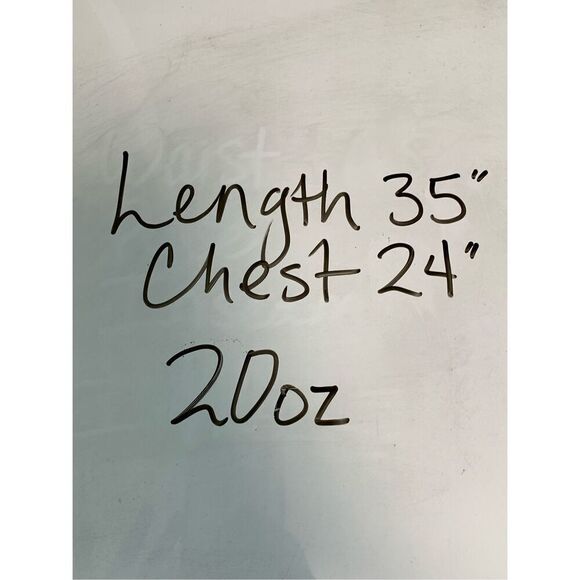 Length 35"
Chest 24"
20oz